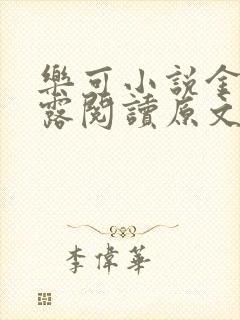 樂可小說金
露閱讀原文
李偉華